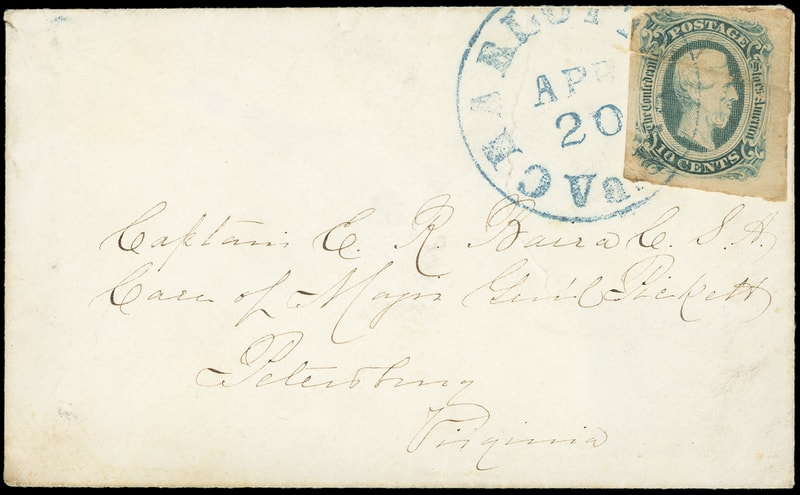 CHARLOTT
APR
20
Va.
POSTAGE
The Confederate States of America
10 CENTS
Captain E. R. Baird C. S. A.
Care of Major Gen'l Pickett
Petersburg
Virginia